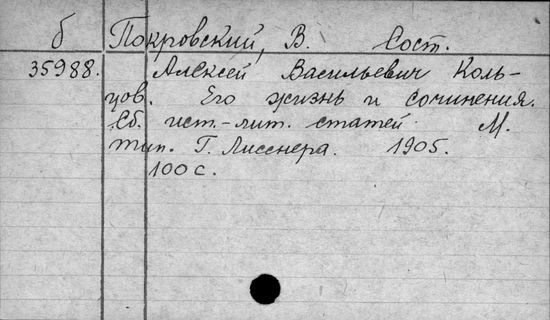 б Покровский, В. Сост.
35988. Алексей Васильевич Коль-
цов. Его жизнь и сочинения.
Сб. ист.-лит. статей М.
тип. Г. Лисснера. 1905.
100 с.